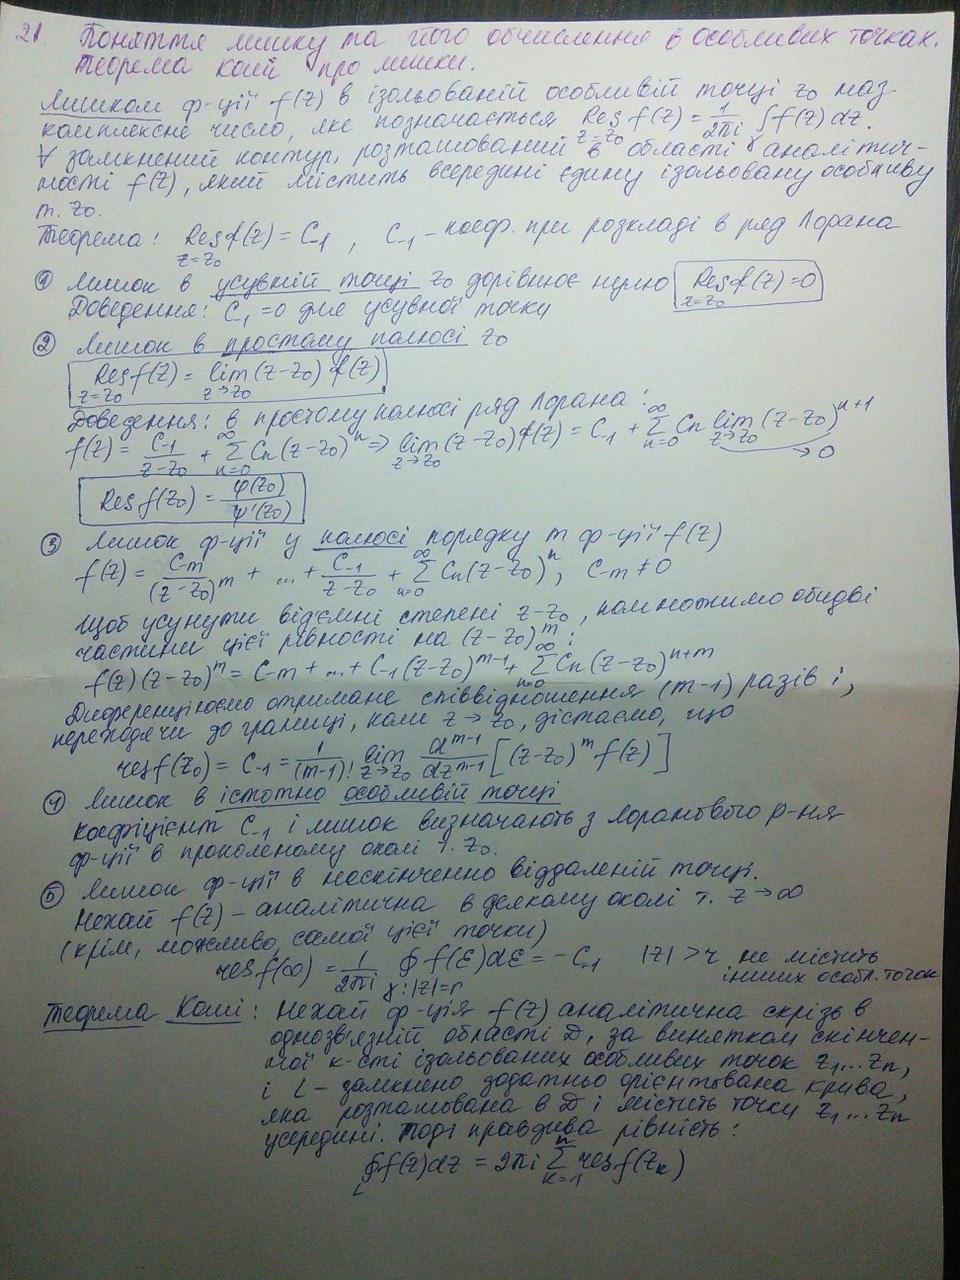 21. Поняття лишку та його обчислення в особливих точках.
Теорема Коші про лишки.
Лишком ф-ції f(z) в ізольованій особливій точці z₀ наз.
комплексне число, яке позначається Res f(z) = 1/2πi ∫f(z)dz.
z=z₀ γ
∀ замкнений контур, розташований в області аналітич-
ності f(z), який містить всередині єдину ізольовану особливу
т. z₀.
Теорема: Res f(z) = C₋₁ , C₋₁ – коеф. при розкладі в ряд Лорана
z=z₀
① Лишок в усувній точці z₀ дорівнює нулю Res f(z)=0
z=z₀
Доведення: C₋₁=0 для усувної точки
② Лишок в простому полюсі z₀
Res f(z) = lim (z-z₀) f(z)
z=z₀ z→z₀
Доведення: в простому полюсі ряд Лорана:
f(z) = C₋₁/(z-z₀) + ∞Σn=0 Cn(z-z₀)ⁿ ⇒ lim z→z₀ (z-z₀)f(z) = C₋₁ + ∞Σn=0 Cn lim z→z₀ (z-z₀)ⁿ⁺¹
→0
Res f(z₀) = φ(z₀)/ψ'(z₀)
③ Лишок ф-ції у полюсі порядку m ф-ції f(z)
f(z) = C₋m/(z-z₀)ᵐ + ... + C₋₁/(z-z₀) + ∞Σn=0 Cn(z-z₀)ⁿ, C₋m ≠ 0
Щоб усунути від'ємні степені z-z₀, помножимо обидві
частини цієї рівності на (z-z₀)ᵐ:
f(z)(z-z₀)ᵐ = C₋m + ... + C₋₁(z-z₀)ᵐ⁻¹ + ∞Σn=0 Cn(z-z₀)ⁿ⁺ᵐ
Диференціюємо отримане співвідношення (m-1) разів і,
переходячи до границі, коли z→z₀, дістаємо, що
res f(z₀) = C₋₁ = 1/(m-1)! lim z→z₀ dᵐ⁻¹/dzᵐ⁻¹ [(z-z₀)ᵐ f(z)]
④ Лишок в істотно особливій точці
коефіцієнт C₋₁ і лишок визначають з лоранового р-ня
ф-ції в проколеному околі т. z₀.
⑤ Лишок ф-ції в нескінченно віддаленій точці.
Нехай f(z) – аналітична в деякому околі т. z→∞
(крім, можливо, самої цієї точки)
res f(∞) = 1/2πi ∮ f(ε)dε = -C₋₁ |z|>r не містить
γ:|z|=r інших особл. точок
Теорема Коші: Нехай ф-ція f(z) аналітична скрізь в
однозв'язній області D, за винятком скінчен-
ної к-сті ізольованих особливих точок z₁...zn,
і L – замкнено додатньо орієнтована крива,
яка розташована в D і містить точки z₁...zn
усередині. Тоді правдива рівність:
∮L f(z)dz = 2πi nΣk=1 res f(zk)